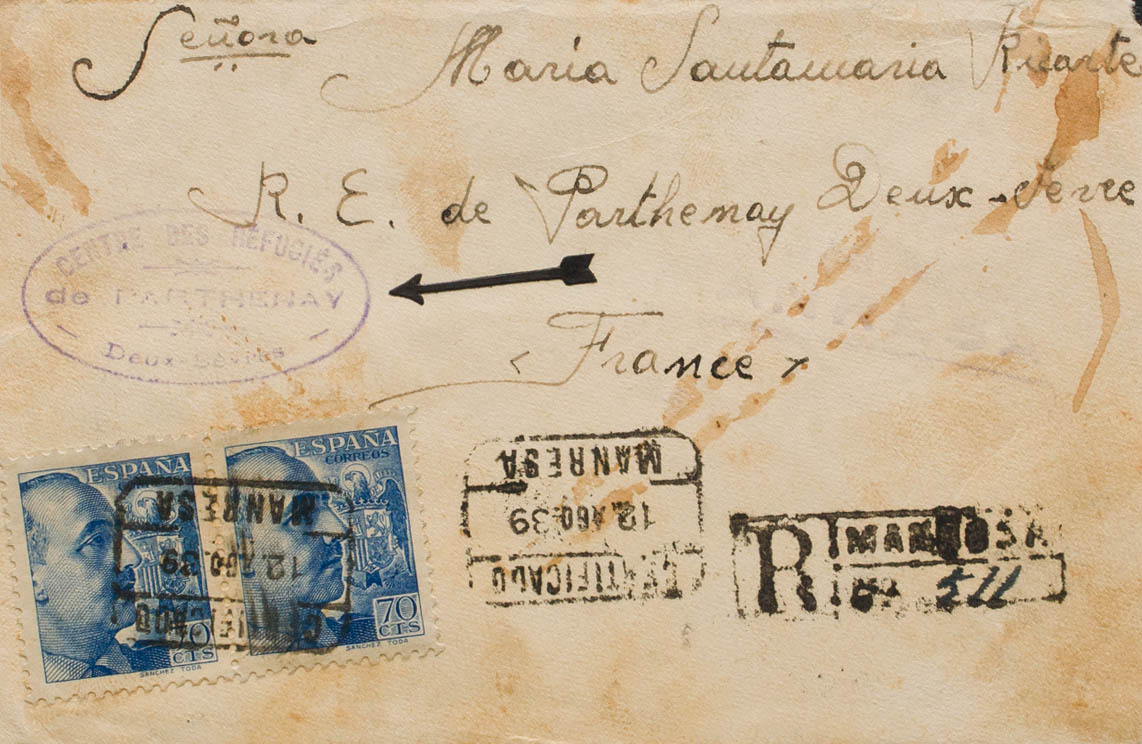 Señora María Santamaria Ruarte
R. E. de Parthenay Deux-Sevre
France
CENTRE DES RÉFUGIÉS
de PARTHENAY
Deux-Sèvres
ESPAÑA
70
CTS
SANCHEZ TODA
ESPAÑA
CORREOS
70
CTS
SANCHEZ TODA
MANRESA
12.AGO.39
CERTIFICADO
MANRESA
12.AGO.39
CERTIFICADO
R MANRESA
511